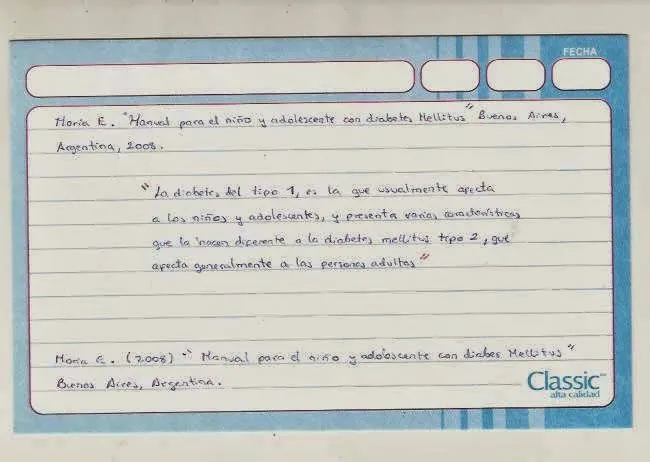 FECHA
María E. "Manual para el niño y adolescente con diabetes Mellitus" Buenos Aires,
Argentina, 2008.
"La diabetes del tipo 1, es la que usualmente afecta
a los niños y adolescentes, y presenta varias características
que la hacen diferente a la diabetes mellitus tipo 2, que
afecta generalmente a las personas adultas"
María E. (2008) "Manual para el niño y adolescente con diabes Mellitus"
Buenos Aires, Argentina.
Classic
alta calidad